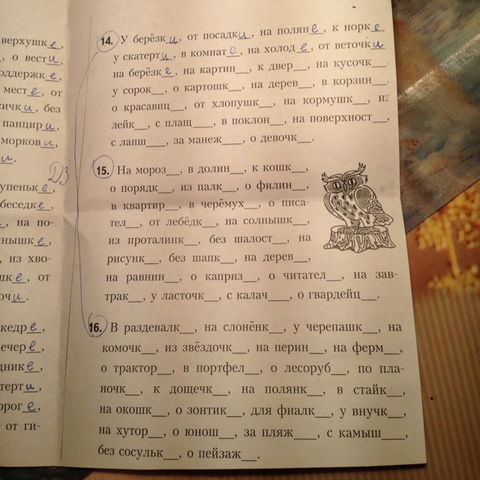 верхушке,
, о вести,
оддержке,
месте, от
ички, без
панцири,
моркови,
и.
ДЗ
упеньке,
беседке,
, на по-
нышке,
, из хво-
шке, от
очи.
кедре,
ечере,
днике,
терти,
ороге,
, от ги-
14. У берёзки, от посадки, на поляне, к норке
у скатерти, в комнате, на холоде, от веточки
на берёзке, на картин__, к двер__, на кусочк__
у сорок__, о картошк__, на дерев__, в корзин__
о красавиц__, от хлопушк__, на кормушк__, из
лейк__, с плащ__, в поклон__, на поверхност__,
с лапш__, за манеж__, о девочк__.
15. На мороз__, в долин__, к кошк__,
о порядк__, из палк__, о филин__,
в квартир__, в черёмух__, о писа-
тел__, от лебёдк__, на солнышк__,
из проталинк__, без шалост__, на
рисунк__, без шапк__, на дерев__,
на равнин__, о каприз__, о читател__, на зав-
трак__, у ласточк__, с калач__, о гвардейц__.
16. В раздевалк__, на слонёнк__, у черепашк__, на
комочк__, из звёздочк__, на перин__, на ферм__,
о трактор__, в портфел__, о лесоруб__, по пла-
ночк__, к дощечк__, на полянк__, в стайк__,
на окошк__, о зонтик__, для фиалк__, у внучк__,
на хутор__, о юнош__, за пляж__, с камыш__,
без сосульк__, о пейзаж__.